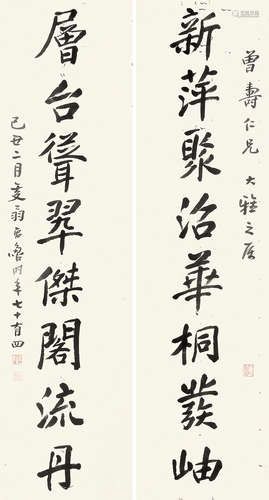 曾壽仁兄大雅之屬
新萍聚沼華桐發岫
層台聳翠傑閣流丹
己丑二月翁魯時年七十有四